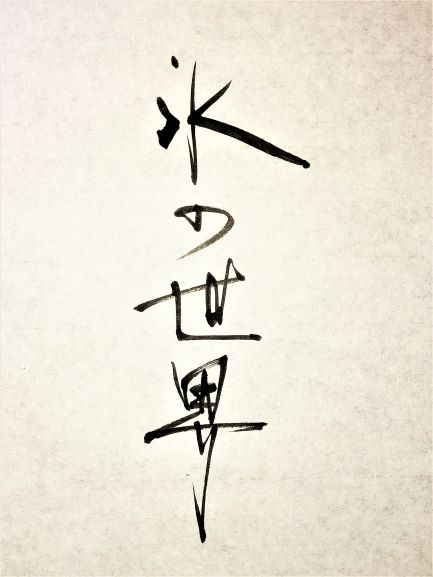 氷の世界